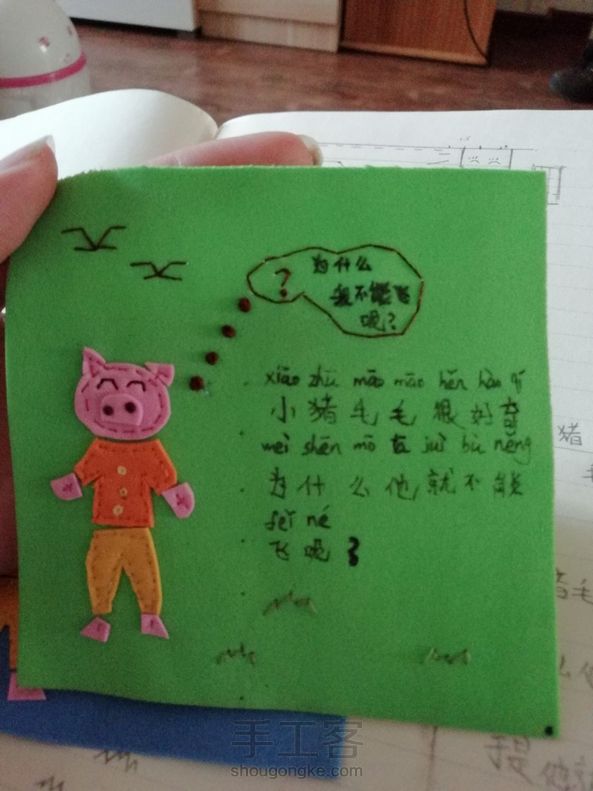 ?
为什么
我不能飞
呢?
xiǎo zhū māo māo hěn hào qí
小猪毛毛很好奇
wèi shēn mō tā jiù bù néng
为什么他就不能
fēi né
飞呢?
猪
手工客
shougongke.com